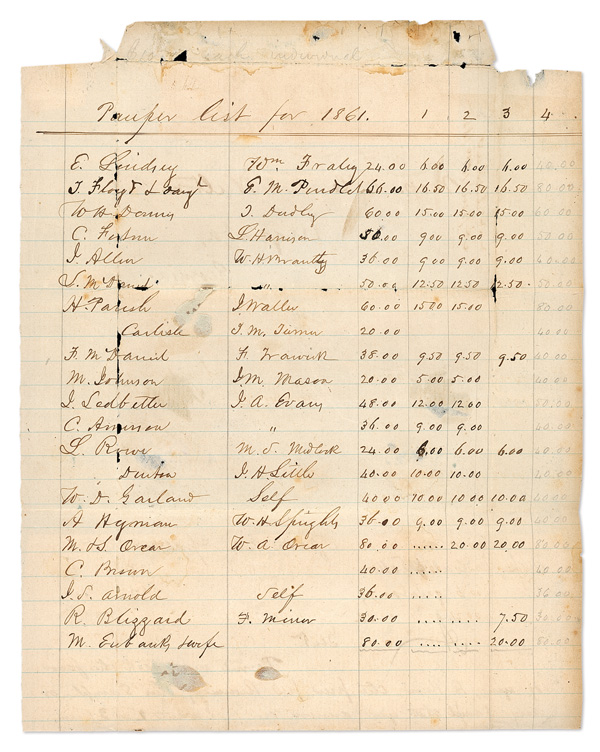 Pauper list for 1861. 1 2 3 4
E. Lindsey Wm Fraley 24.00 6.00 6.00 6.00 40.00
T. Floyd & E. M. 66.00 16.50 16.50 16.50 80.00
W. H. Dennis J. Dudley 60.00 15.00 15.00 15.00 60.00
C. L. Harrison 36.00 9.00 9.00 9.00 50.00
J. Allen W. H. Brantly 36.00 9.00 9.00 9.00
S. McDaniel " 50.00 12.50 12.50 12.50 50.00
H. Parish J. Waller 60.00 15.00 15.00 80.00
Carlisle J. M. Turner 20.00 40.00
F. McDaniel F. Trawick 38.00 9.50 9.50 9.50 40.00
M. Johnson J. M. Mason 20.00 5.00 5.00 40.00
J. Ledbetter J. A. Evans 48.00 12.00 12.00
C. Amerson " 36.00 9.00 9.00 40.00
L. Rowe M. S. Medlock 24.00 6.00 6.00 6.00 40.00
Denton J. H. Little 40.00 10.00 10.00 40.00
W. D. Garland Self 40.00 10.00 10.00 10.00 40.00
A Hyman W. H. 36.00 9.00 9.00 9.00 40.00
M. & S. Orear W. A. Orear 80.00 ...... 20.00 20.00 80.00
C. Brown 40.00 ...... 40.00
J. S. Arnold Self 36.00 ..... 36.00
R. Blizzard F. Minor 30.00 .... .... 7.50 30.00
M. Eubanks & wife 80.00 .... .... 20.00 80.00